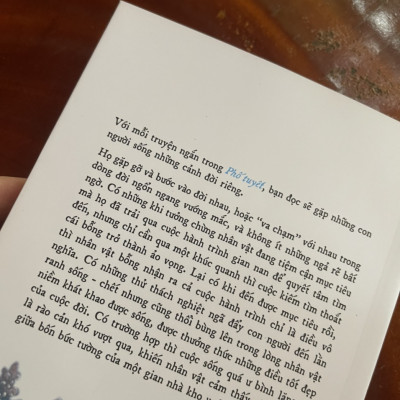 Với mỗi truyện ngắn trong Phố tuyết, bạn đọc sẽ gặp những con
người sống những cảnh đời riêng.
Họ gặp gỡ và bước vào đời nhau, hoặc "va chạm" với nhau trong
dòng đời ngổn ngang vướng mắc, và không ít những ngã rẽ bất
ngờ. Có những khi tưởng chừng nhân vật đang tiệm cận mục tiêu
mà họ đã trải qua cuộc hành trình gian nan để quyết tâm tìm
đến, nhưng chỉ cần qua một khúc quanh thì cuộc kiến tìm thoắt
cái bỗng trở thành ảo vọng. Lại có khi đến được mục tiêu rồi,
thì nhân vật bỗng nhận ra cả cuộc hành trình chỉ là điều vô
nghĩa. Có những thử thách nghiệt ngã đẩy con người đến lằn
ranh sống - chết nhưng cũng thổi bùng lên trong lòng nhân vật
niềm khát khao được sống, được thưởng thức những điều tốt đẹp
của cuộc đời. Có trường hợp thì cuộc sống quá ư bình lặng
là rào cản khó vượt qua, khiến nhân vật cảm thấy
giữa bốn bức tường của một gian nhà kho